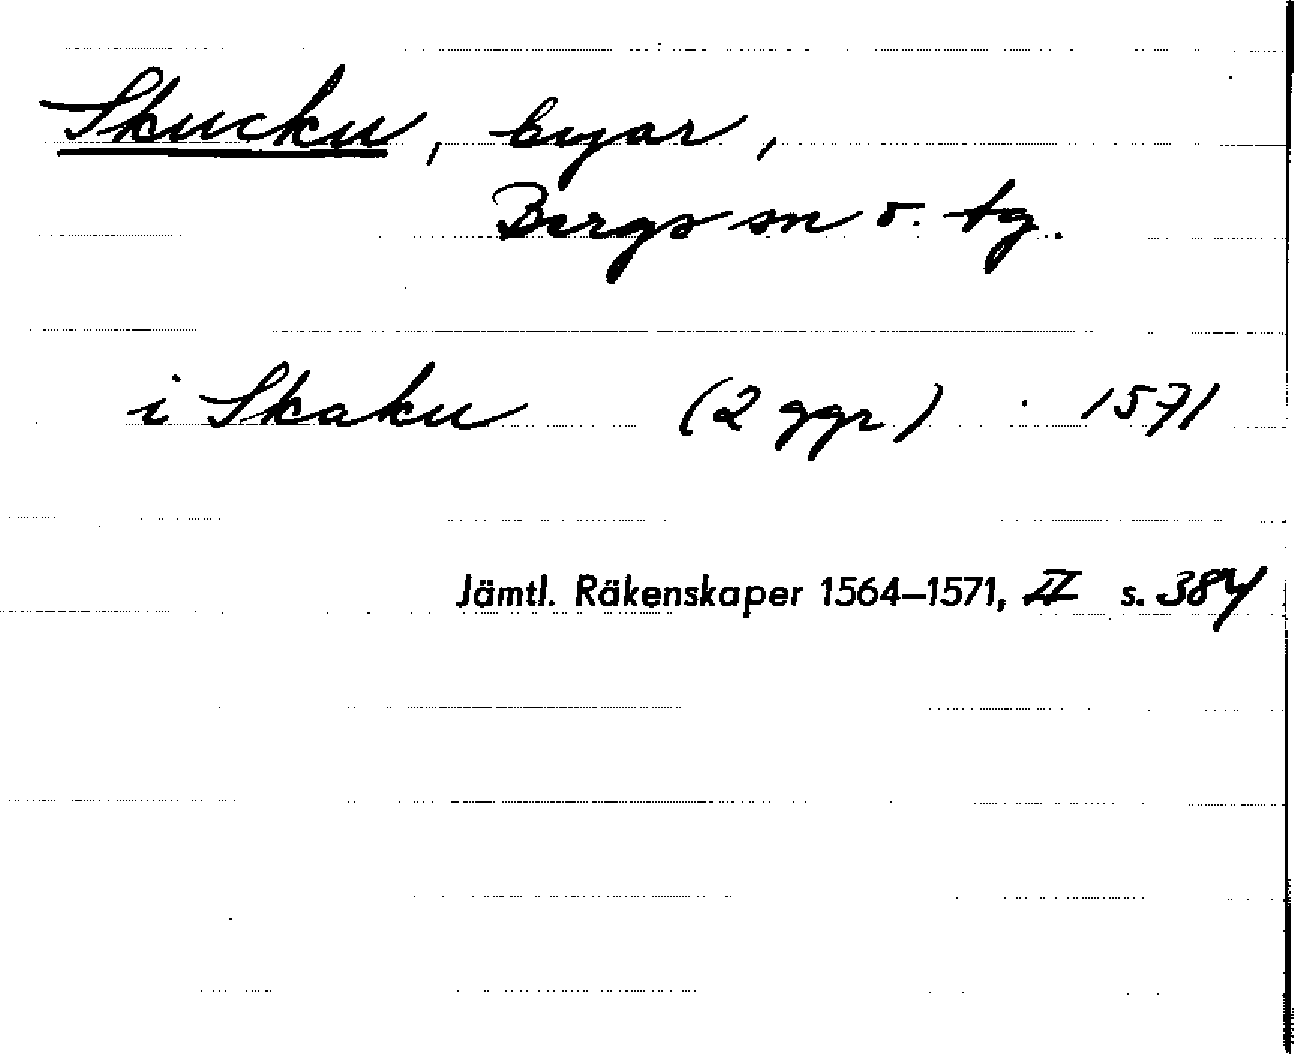 Skucku, byar,
Bergs sn o. tg.
i Skaku (2 ggr) 1571
Jämtl. Räkenskaper 1564–1571, II s. 384